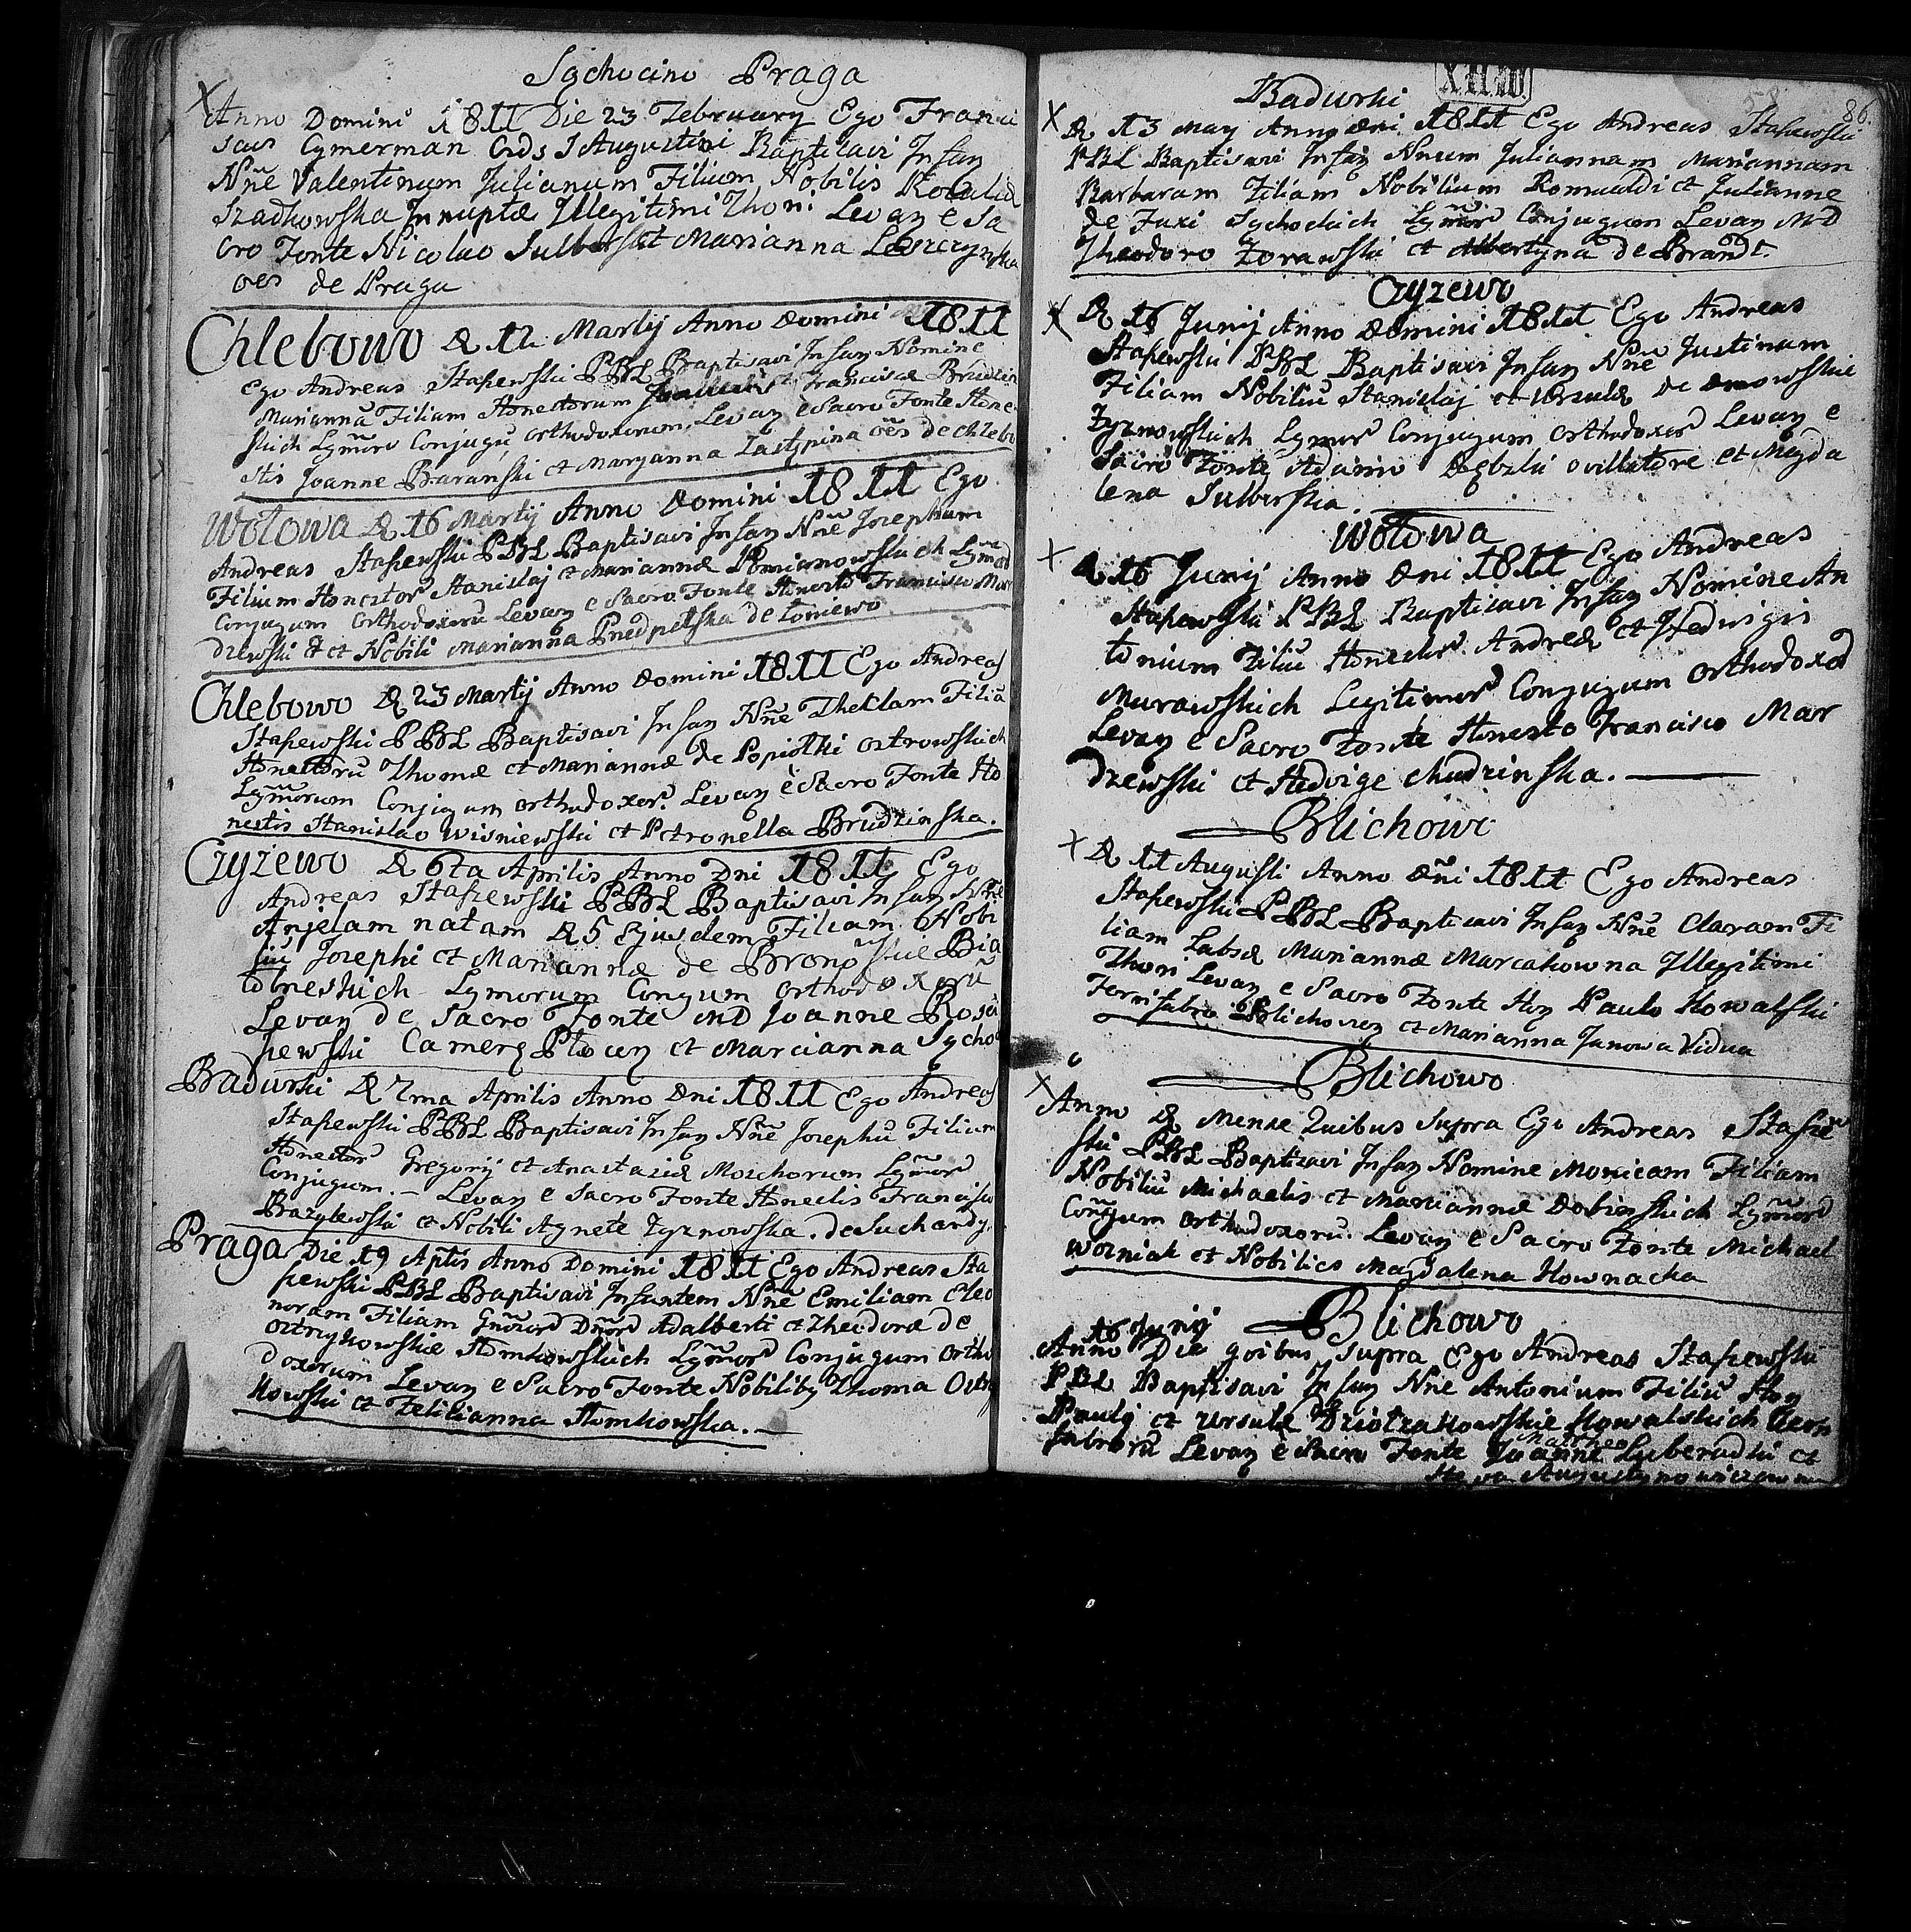 Sychocino Praga
Anno Domini 1811 Die 23 February Ego Franci
scus Cymerman Ords S Augustini Baptisavi Infan
Nñe Valentinum Julianum Filium Nobilis Rosalia
Szadkowska Innuptæ Illegitimi Thori Levan e Sa
cro Fonte Nicolao et Marianna Leszczynska
oes de Praga
Chlebowo D 12 Martij Anno Domini 1811
Ego Andreas Stasewski PBL Baptisavi Infan Nomine
Mariannã Filiam Honestorum et Franciscæ Brudzin
skich Lgm̃oro Conjugũ orthodoxorum. Levan e Sacro Fonte Hone
stis Joanne Baranski et Maryanna Zastępina oẽs de Chlebo
Wołowa D 16 Martij Anno Domini 1811 Ego
Andreas Stasewski PBL Baptisavi Infan Nñe Josephum
Filium Honestor Stanislaj et Mariannæ Pomianowskich Lgm̃or
Conjugum Orthodoxorũ Levan e Sacro Fonte Honesto Francisco Mar
dzewski et Nobili Marianna de Łoniewo
Chlebowo D 23 Martij Anno Domini 1811 Ego Andreas
Stasewski PBL Baptisavi Infan Nñe Theklam Filiã
Honestorũ Thomæ et Mariannæ de Popiołki ostrowskich
Lgm̃orum Conjugum orthodoxor. Levan e Sacro Fonte Ho
nestis Stanislao Wisniewski et Petronella Brudzinska.
Czyżewo D 6ta Aprilis Anno Dni 1811 Ego
Andreas Stasewski PBL Baptisavi Infan Nñe
Anjelam natam D 5 Ejusdem Filiam Nobi
liũ Josephi et Mariannæ de Bia
łobrzeskich Lgmorum Congum Orthodoxorũ
Levan de Sacro Fonte MD Joanne Rosci
szewski Camerę Płocen et Marcianna Sycho
Badurki D 7ma Aprilis Anno Dni 1811 Ego Andreas
Stasewski PBL Baptisavi Infan Nñe Josephũ Filium
Honestor Gregorij et Anastaziæ Moschorum Lgm̃or
Conjugum. – Levan e Sacro Fonte Honestis Francisco
Bazylewski et Nobili Agnete Zyznowska. de Suchardy.
Praga Die 19 Aplis Anno Domini 1811 Ego Andreas Sta
szewski PBL Baptisavi Infantem Nñe Emiliam Eleo
noram Filiam Gñ̃oror Dñor Adalberti et Theodoræ de
ostrzykowskie Słomkowskich Lgm̃or Conjugum Ortho
doxorum Levan e Sacro Fonte Nobilibg Thoma Ostrzy
kowski et Felicianna Słomkowska. –
XIIW
86
Badurki
D 13 May Anno Dni 1811 Ego Andreas Stasewski
PBL Baptisavi Infan Nnem Juliannam Mariannam
Barbaram Filiam Nobilium Romualdi et Julianne
de Sychockich Lgm̃or Conjugum Levan MD
Theodoro Zorawski et Albertyna de Brandt.
Czyzewo
D 16 Junij Anno Domini 1811 Ego Andreas
Stasewski PBL Baptisavi Infan Nñe Justinam
Filiam Nobiliũ Stanislaj et Ursulæ de omowskie
Zyznowskich Lgmor Conjugum orthodoxor Levan e
Sacro Fonte Adamo Dębski ovillatore et Magda
lena Sulberska.
Wołowa
D 16 Junij Anno Dni 1811 Ego Andreas
Stasewski PBL Baptisavi Infan Nomine An
tonium Filiũ Honestor Andreæ et Hedwigis
Murawskich Legitimor Conjugum Orthodoxor
Levan e Sacro Fonte Honesto Francisco Mar
dzewski et Hedvige Chudzinska.
Blichowo
D 11 Augusti Anno Dñi 1811 Ego Andreas
Stasewski PBL Baptisavi Infan Nñe Claram Fi
liam Labsæ Mariannæ Marcakowna Illegitimi
Thori Levan e Sacro Fonte Hon Paulo Kowalski
Ferri fabro Blichovien et Marianna Janowa Vidua
Blichowo
Anno D Mense Quibus Supra Ego Andreas Stasiew
ski PBL Baptisavi Infan Nomine Monicam Filiam
Nobiliũ Michaelis et Mariannæ Dobinskich Lgm̃or
Coñgum orthodoxorũ. Levan e Sacro Fonte Michael
Wozniak et Nobilico Magdalena Kownacka
Blichowo
16 Junij
Anno Die qvibus Supra Ego Andreas Stasewski
PBL Baptisavi Infan Nñe Antonium Filiũ Hon
Paulj et Ursulæ Kowalskich Ferri
fabrorũ Levan e Sacro Fonte Mattheo Luberadzki et
Augustynowiczowna